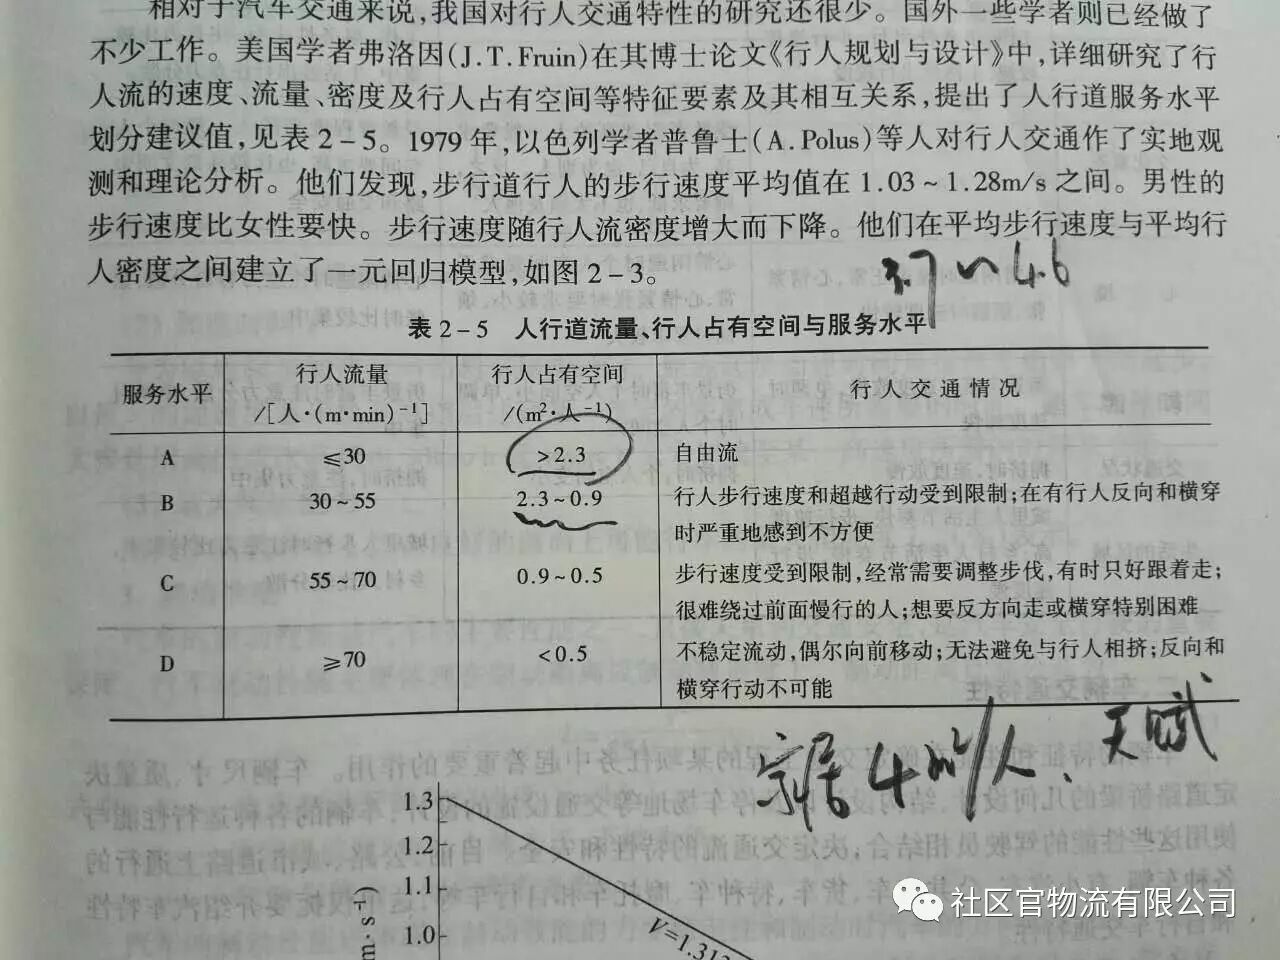 相对于汽车交通来说,我国对行人交通特性的研究还很少。国外一些学者则已经做了
不少工作。美国学者弗洛因(J.T.Fruin)在其博士论文《行人规划与设计》中,详细研究了行
人流的速度、流量、密度及行人占有空间等特征要素及其相互关系,提出了人行道服务水平
划分建议值,见表2-5。1979年,以色列学者普鲁士(A.Polus)等人对行人交通作了实地观
测和理论分析。他们发现,步行道行人的步行速度平均值在1.03~1.28m/s之间。男性的
步行速度比女性要快。步行速度随行人流密度增大而下降。他们在平均步行速度与平均行
人密度之间建立了一元回归模型,如图2-3。
3.7~4.6
表2-5 人行道流量、行人占有空间与服务水平
服务水平 行人流量/[人·(m·min)⁻¹] 行人占有空间/(m²·人⁻¹) 行人交通情况
A ≤30 >2.3 自由流
B 30~55 2.3~0.9 行人步行速度和超越行动受到限制;在有行人反向和横穿
时严重地感到不方便
C 55~70 0.9~0.5 步行速度受到限制,经常需要调整步伐,有时只好跟着走;
很难绕过前面慢行的人;想要反方向走或横穿特别困难
D ≥70 <0.5 不稳定流动,偶尔向前移动;无法避免与行人相挤;反向和
横穿行动不可能
4m²/人、天赋
1.3
1.2
1.1
1.0
V=1.31
社区官物流有限公司